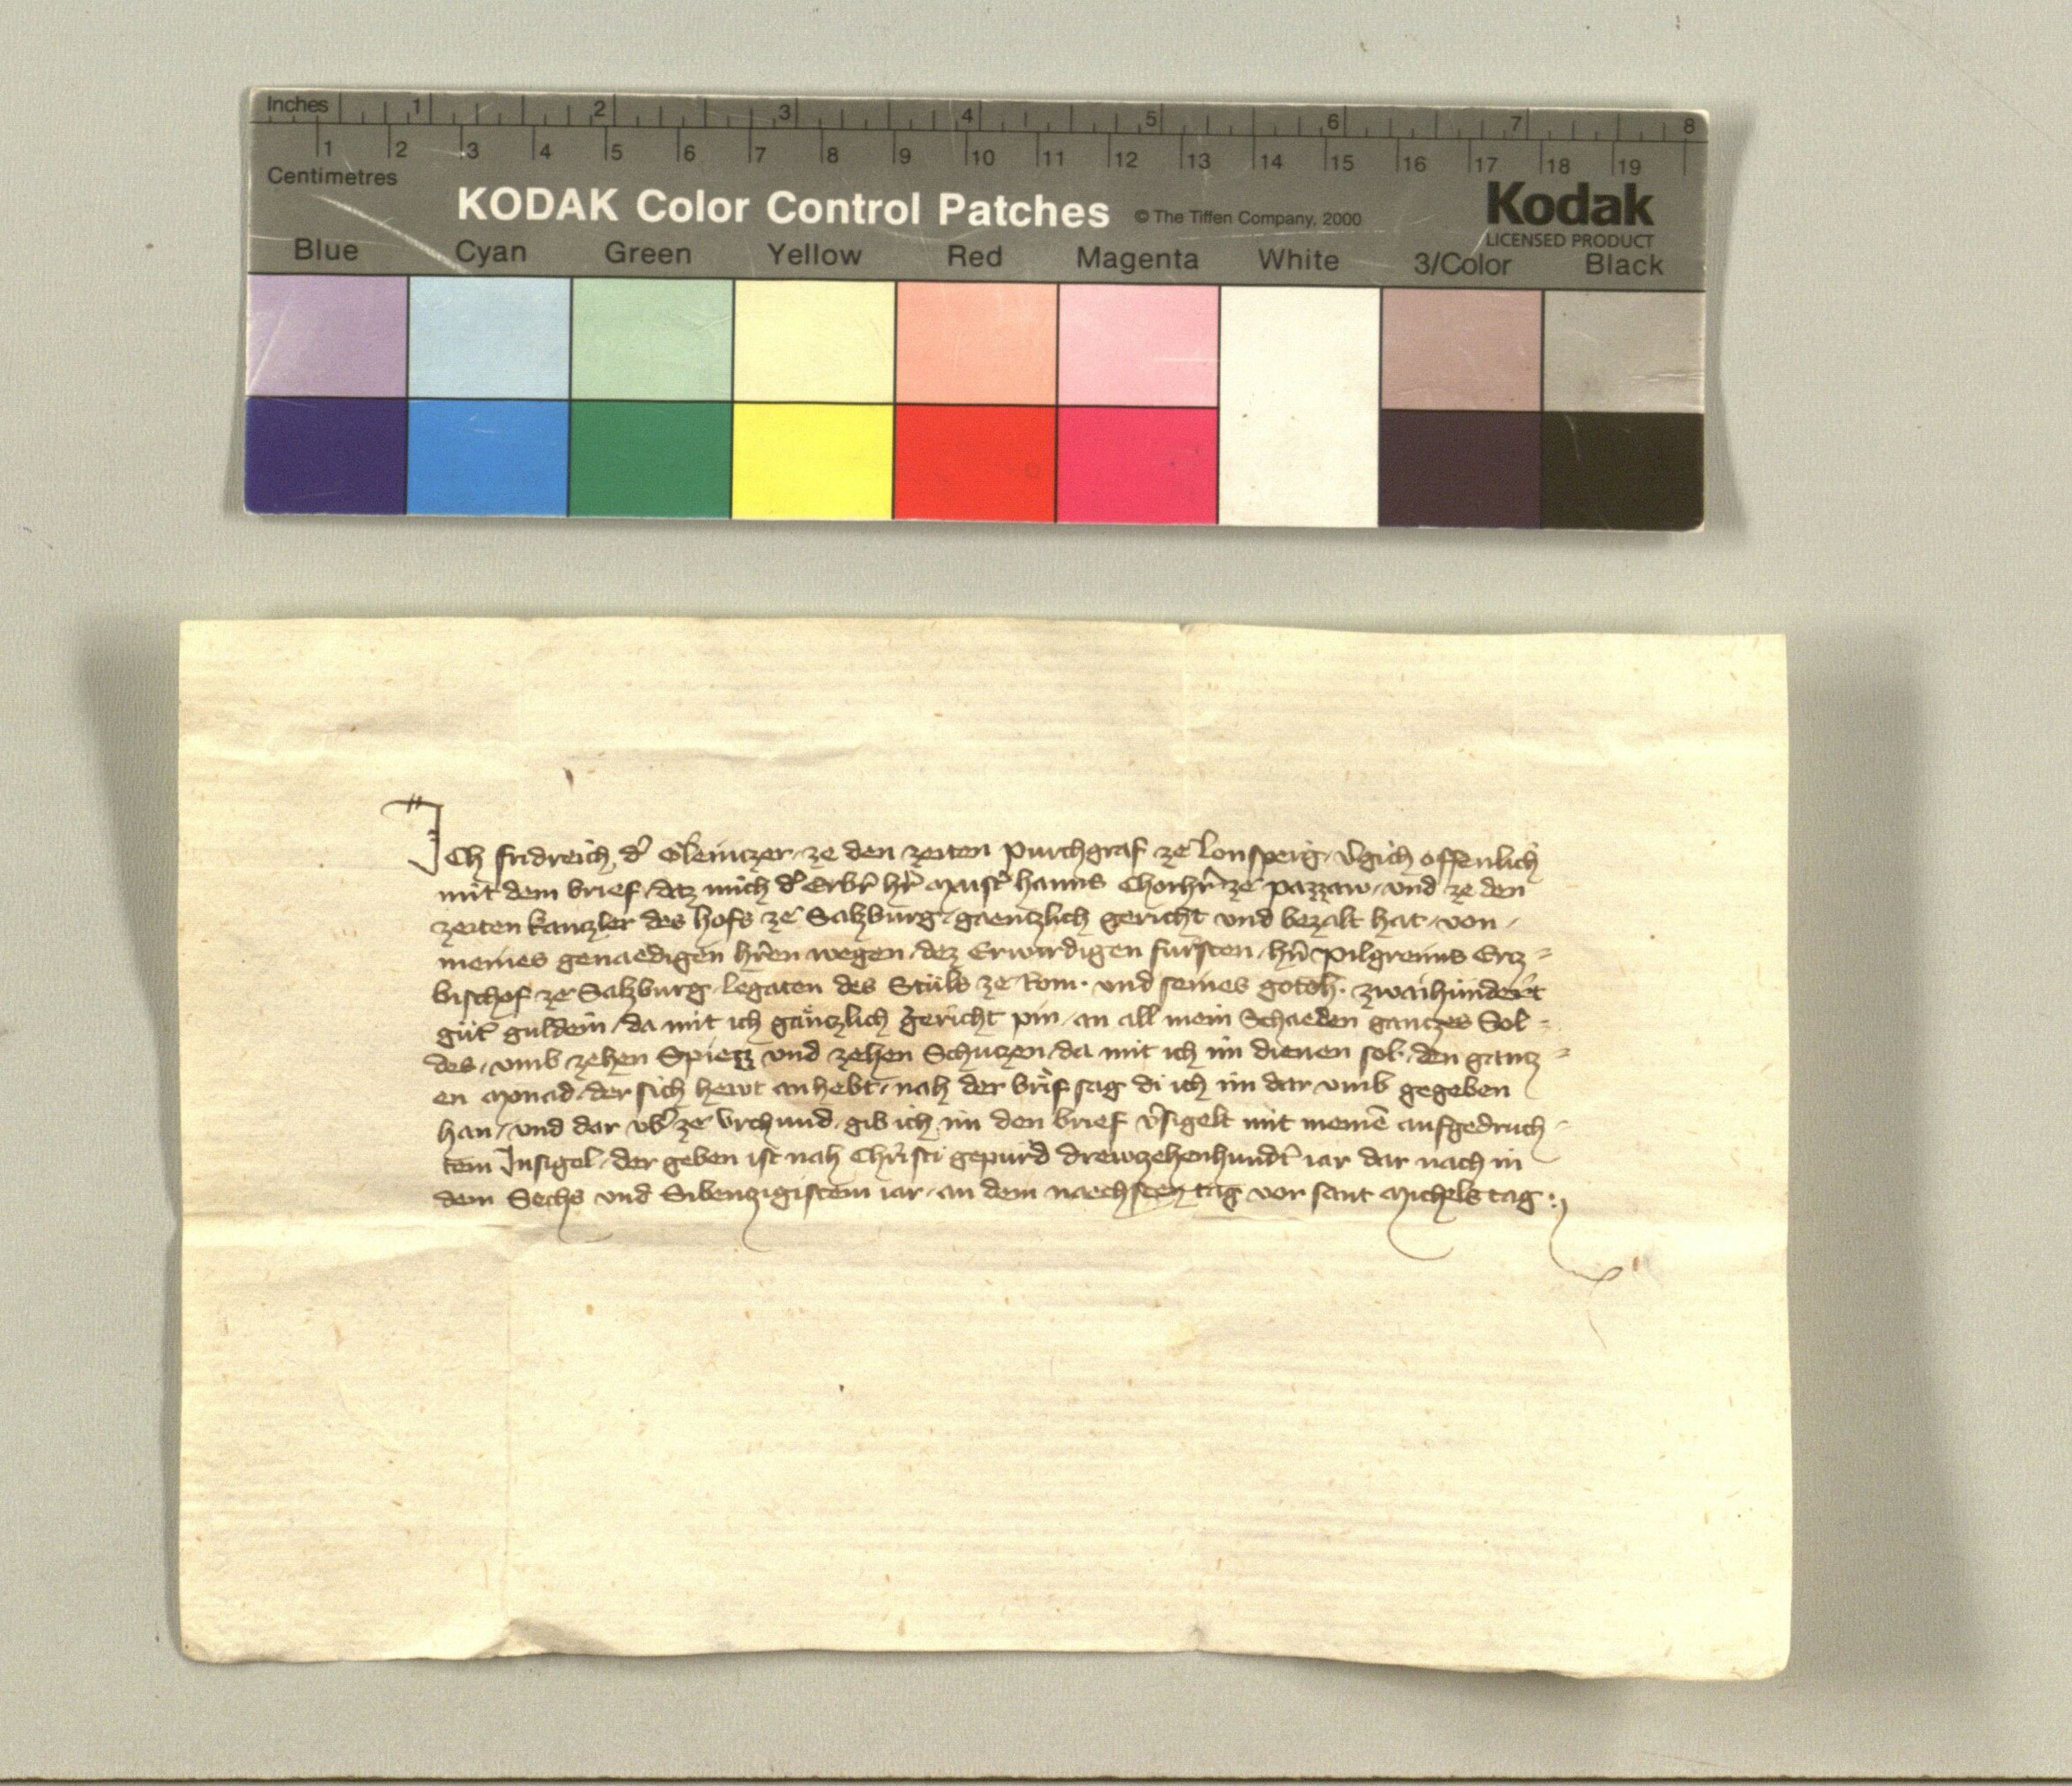 Inches 1 2 3 4 5 6 7 8
1 2 3 4 5 6 7 8 9 10 11 12 13 14 15 16 17 18 19
Centimetres
KODAK Color Control Patches © The Tiffen Company, 2000 Kodak
LICENSED PRODUCT
Blue Cyan Green Yellow Red Magenta White 3/Color Black
Ich fridreich d' Gleinczer ze den zeiten purchgraf ze Lonsperg v'gich offenlich
mit dem brief daz mich d' Erb'r h'r Maist' hanns Chorh'r ze pazzaw und ze den
zeiten kanczler des hofs ze Salzburg gaenczlich gericht und bezalt hat von
meines genaedigen h'ren wegen dez Erwirdigen fürsten h'n pilgreims Ercz=
bischof ze Salzburg legaten des Stüls ze Rom und seines gotsh. zwaihundert
güt' guldein da mit ich gänczlich gericht pin an all mein Schaeden ganczes Sol=
des, umb zehen Spiezz und zehen Schuczen da mit ich im dienen sol den gancz=
en Monad der sich hewt anhebt nah der brif sag di ich im dar umb gegeben
han, und dar vb' ze vrchund gib ich im den brief v'sigelt mit meine̅ aufgedruch=
tem Insigel der geben ist nah Christi gepurd drewczehenhund't iar dar nach in
dem Sechs und Sibenczigistem iar an dem naechsten tag vor sant Michels tag :